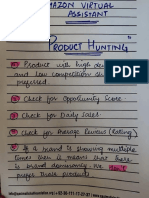 AMAZON VIRTUAL
ASSISTANT
"PRODUCT HUNTING"
Product with high
and low competition
preferred
Check for Opportunity Score
Check for Daily Sales
Check for Average Reviews (Rating)
If a brand is showing multiple
times then it means that there is
brand dominancy. We don't
prefer such products